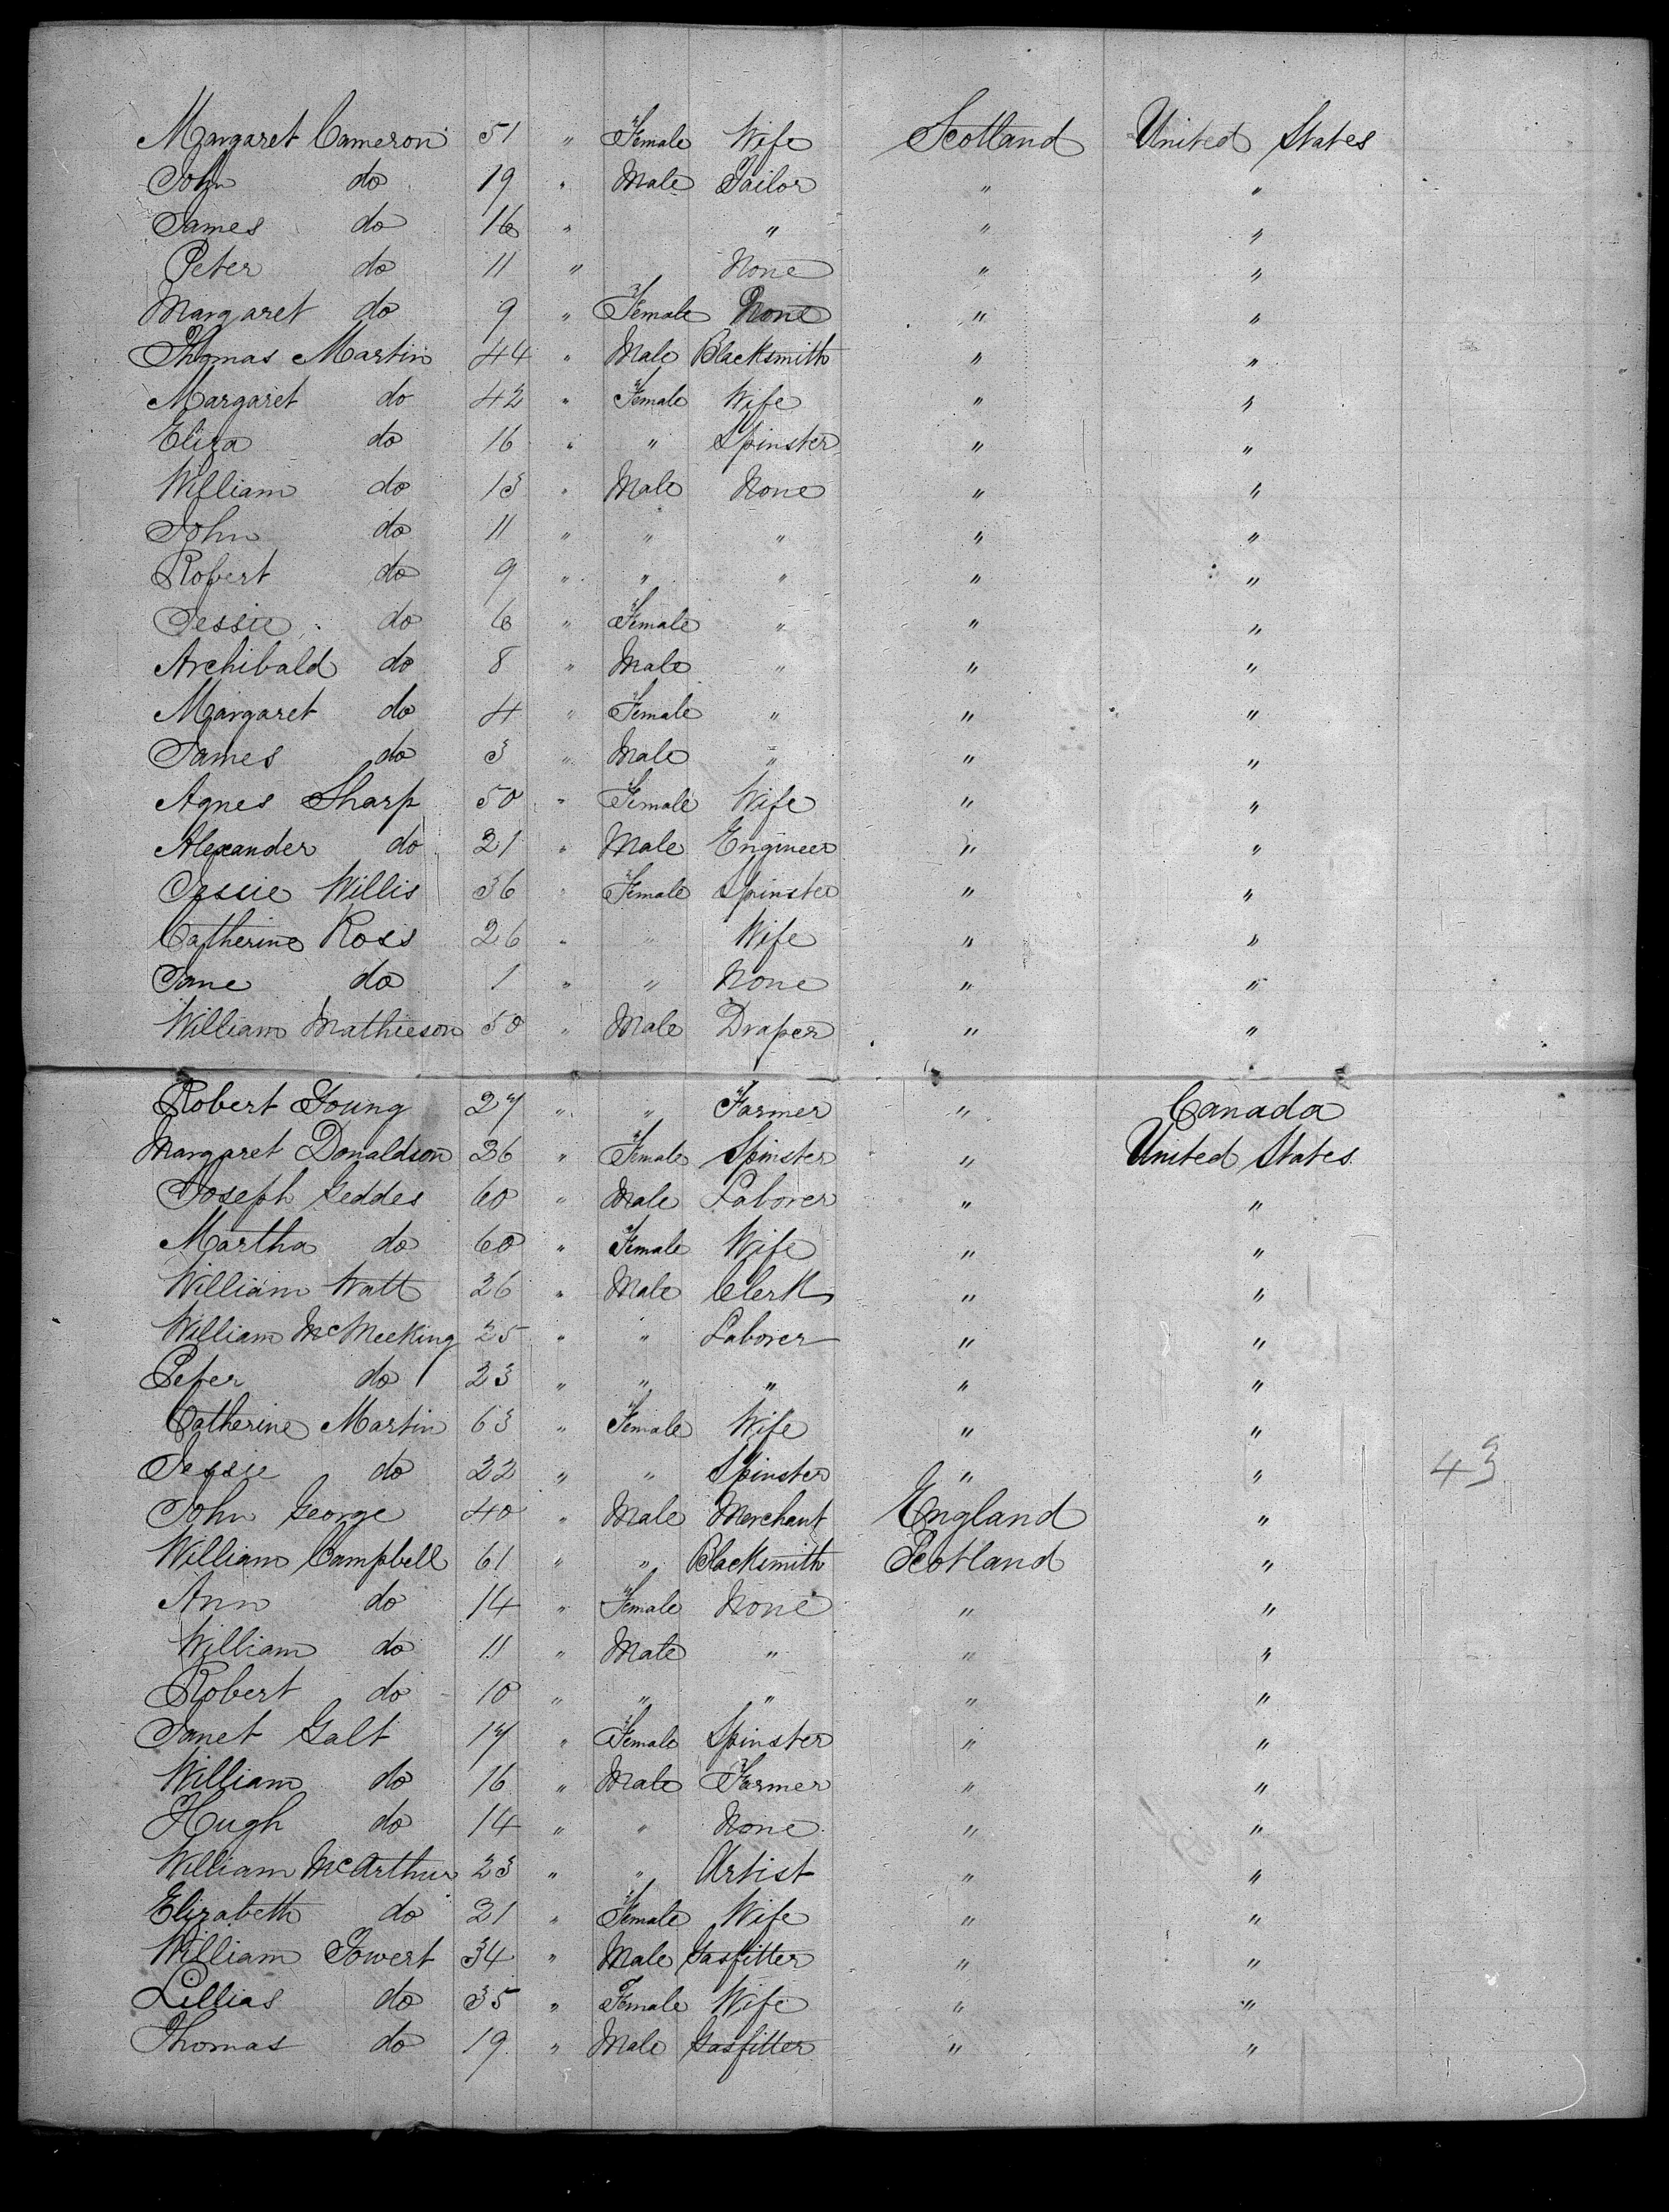 Margaret Cameron 51 " Female Wife Scotland United States
John do 19 " Male Tailor " "
James do 16 " " " "
Peter do 11 " None " "
Margaret do 9 " Female None " "
Thomas Martin 44 " Male Blacksmith " "
Margaret do 42 " Female Wife " "
Eliza do 16 " " Spinster " "
William do 13 " Male None " "
John do 11 " " " " "
Robert do 9 " " " " "
Jessie do 6 " Female " " "
Archibald do 8 " Male " " "
Margaret do 4 " Female " " "
James do 3 " Male " " "
Agnes Sharp 50 " Female Wife " "
Alexander do 21 " Male Engineer " "
Jessie Willis 36 " Female Spinster " "
Catherine Ross 26 " " Wife " "
Jane do 1 " " None " "
William Mathieson 50 " Male Draper " "
Robert Young 27 " " Farmer " Canada
Margaret Donaldson 26 " Female Spinster " United States
Joseph Geddes 60 " Male Laborer " "
Martha do 60 " Female Wife " "
William Watt 26 " Male Clerk " "
William McMeeking 25 " " Laborer " "
Peter do 23 " " " " "
Catherine Martin 63 " Female Wife " "
Jessie do 22 " " Spinster " " 43
John George 40 " Male Merchant England "
William Campbell 61 " " Blacksmith Scotland "
Ann do 14 " Female None " "
William do 11 " Male " " "
Robert do 10 " " " " "
Janet Galt 17 " Female Spinster " "
William do 16 " Male Farmer " "
Hugh do 14 " " None " "
William McArthur 23 " " Artist " "
Elizabeth do 21 " Female Wife " "
William 34 " Male Gasfitter " "
Lillias do 35 " Female Wife " "
Thomas do 19 " Male Gasfitter " "